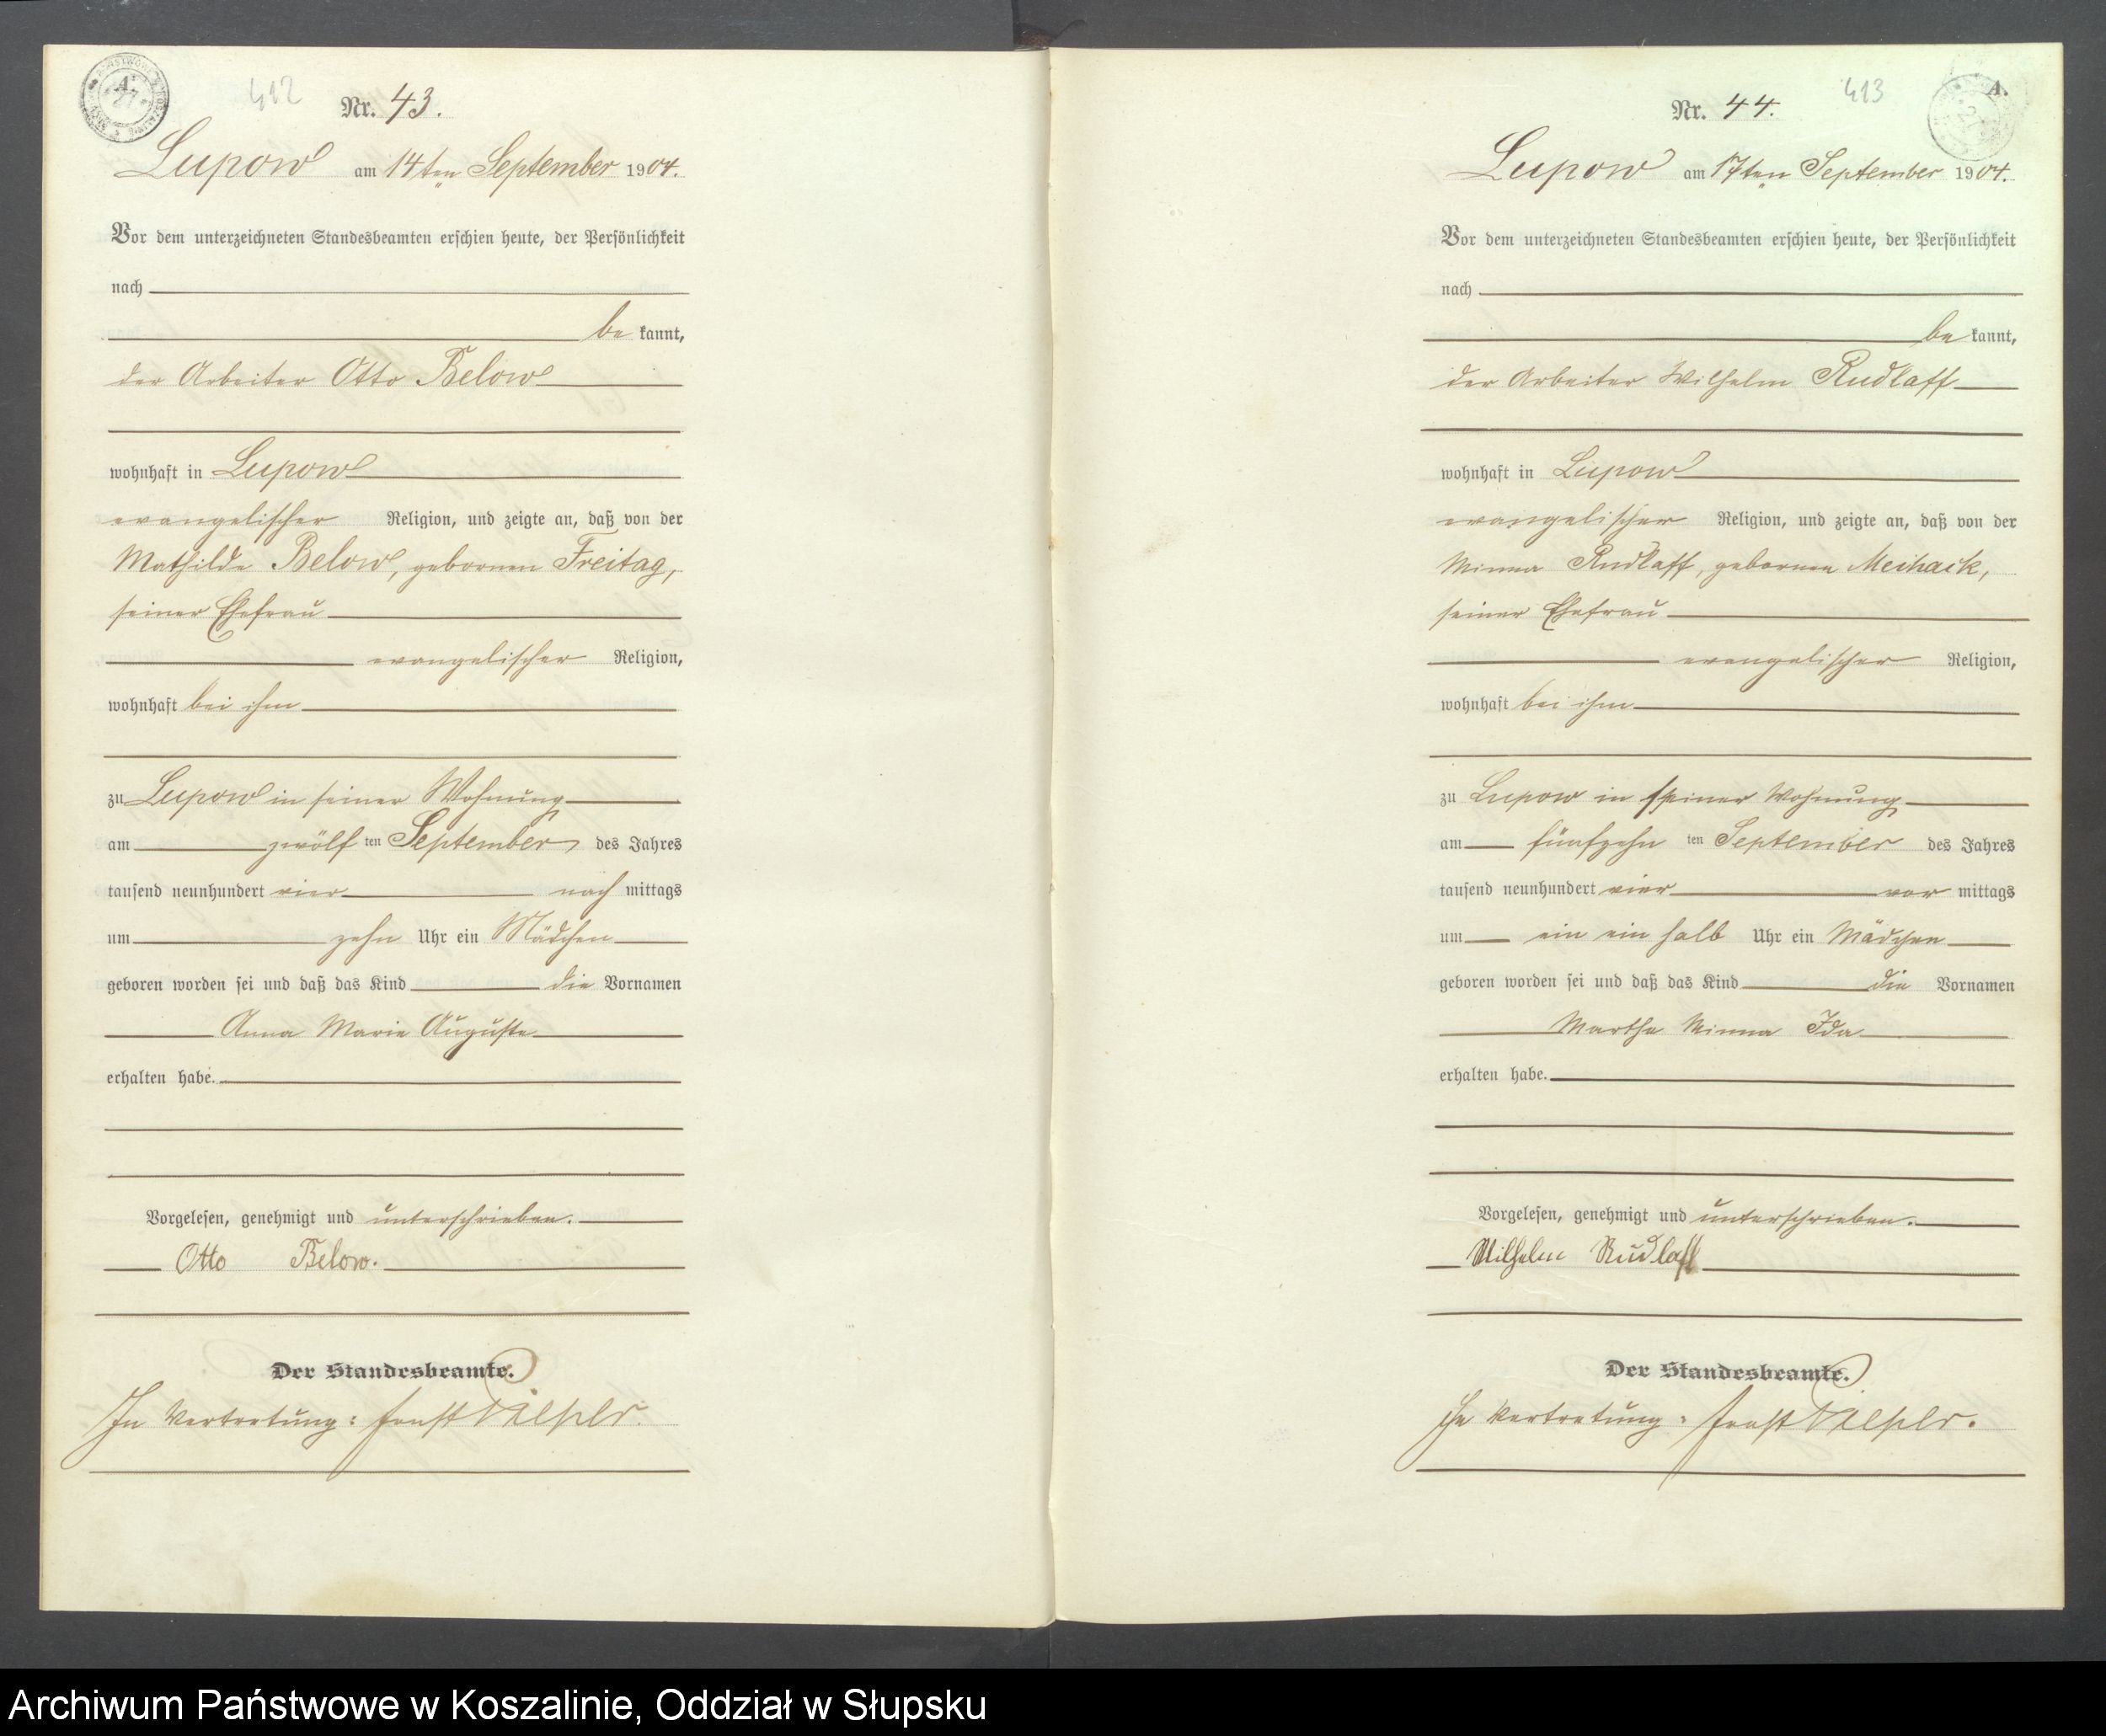 412
Nr. 43.
Lupow am 14ten September 1904.
Vor dem unterzeichneten Standesbeamten erschien heute, der Persönlichkeit
nach
be kannt,
der Arbeiter Otto Below
wohnhaft in Lupow
evangelischer Religion, und zeigte an, daß von der
Mathilde Below, gebornen Freitag,
seiner Ehefrau
evangelischer Religion,
wohnhaft bei ihm
zu Lupow in seiner Wohnung
am zwölf ten September des Jahres
tausend neunhundert vier nach mittags
um zehn Uhr ein Mädchen
geboren worden sei und daß das Kind die Vornamen
Anna Marie Auguste
erhalten habe.
Vorgelesen, genehmigt und unterschrieben.
Otto Below.
Der Standesbeamte.
In Vertretung: Ernst
413
A.
Nr. 44.
Lupow am 17ten September 1904.
Vor dem unterzeichneten Standesbeamten erschien heute, der Persönlichkeit
nach
be kannt,
der Arbeiter Wilhelm Rudlaff
wohnhaft in Lupow
evangelischer Religion, und zeigte an, daß von der
Minna Rudlaff, gebornen
seiner Ehefrau
evangelischer Religion,
wohnhaft bei ihm
zu Lupow in seiner Wohnung
am fünfzehn ten September des Jahres
tausend neunhundert vier vor mittags
um ein ein halb Uhr ein Mädchen
geboren worden sei und daß das Kind die Vornamen
Martha Minna Ida
erhalten habe.
Vorgelesen, genehmigt und unterschrieben.
Wilhelm Rudlaff
Der Standesbeamte.
In Vertretung: Ernst
Archiwum Państwowe w Koszalinie, Oddział w Słupsku